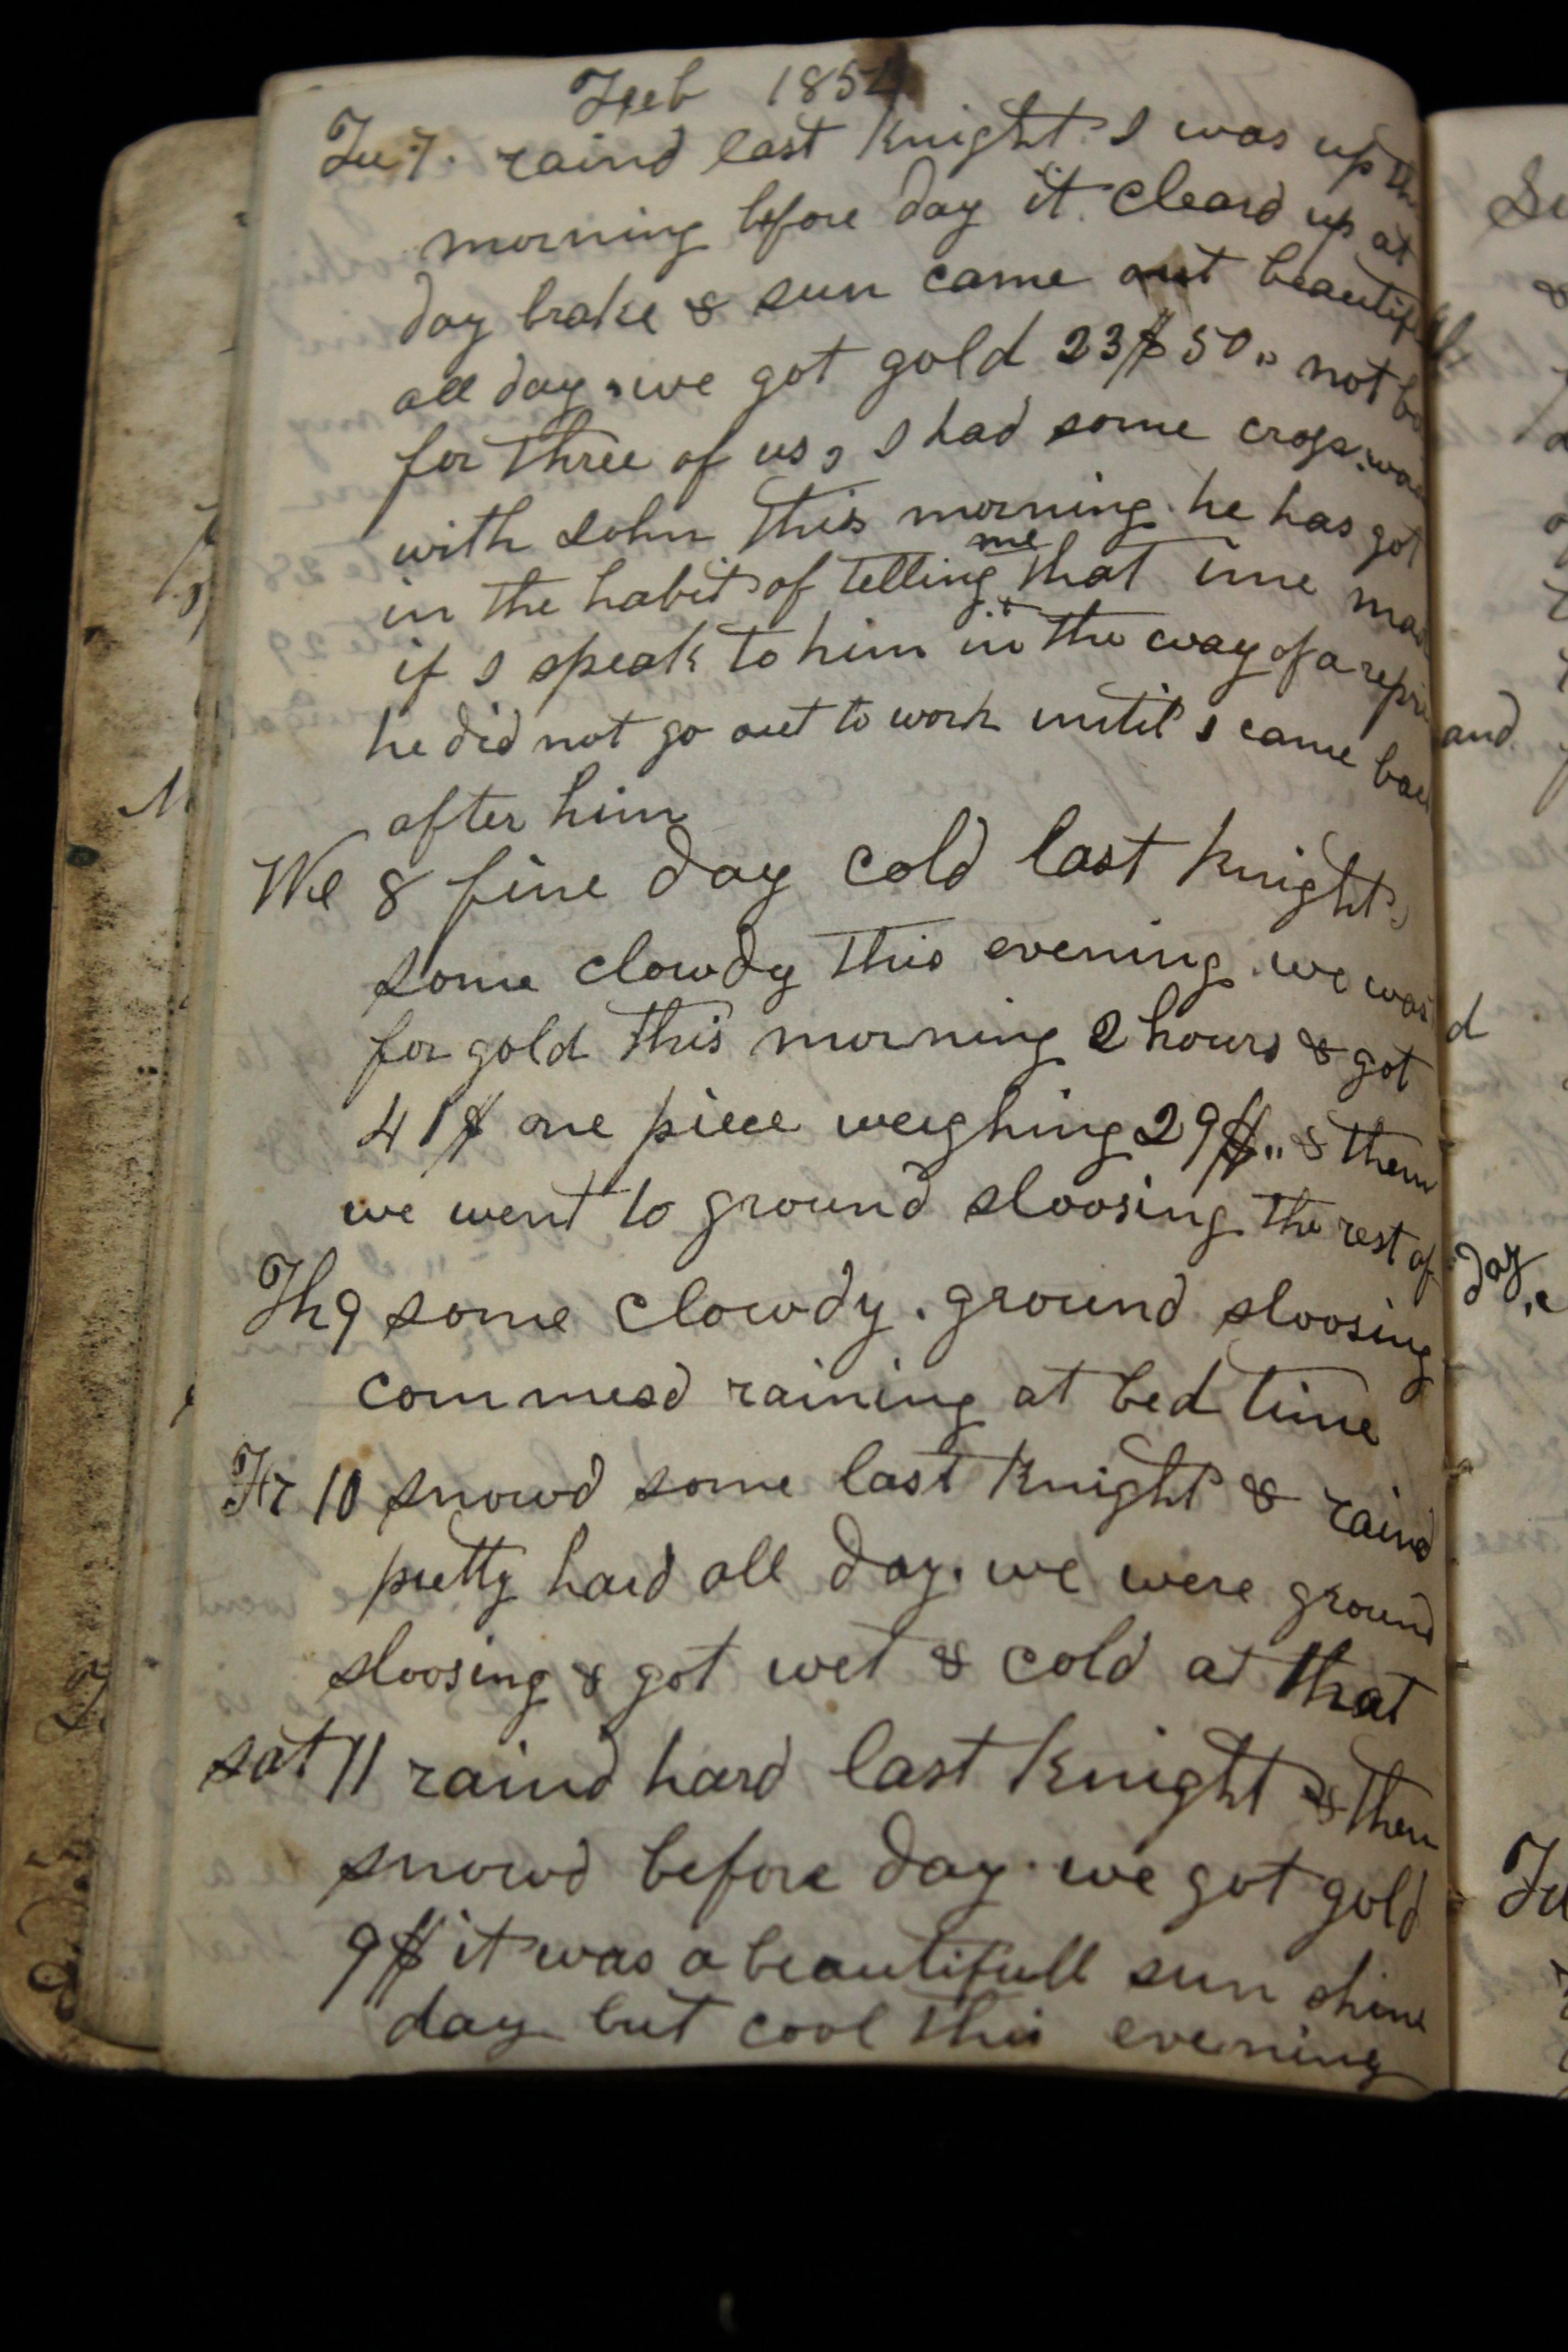 Feb 1854
Tu 7. raind last knight. I was up
morning before day it cleard up at
day brake & sun came out beautifully
all day. we got gold 23$50,, not
for three of us, I had some cross
with John this morning. he has got
in the habit of telling me that ime
if I speak to him in the way of a
he did not go out to work until I came
after him
We 8 fine day cold last knight.
some clowdy this evening. we
for gold this morning 2 hours & got
41$ one piece weighing 29$,, & then
we went to ground sloosing the rest of day,
Th 9 some clowdy. ground sloosing
commesd raining at bed time
Fr 10 snowd some last knight & raind
pretty hard all day. we were ground
sloosing & got wet & cold at that
sat 11 raind hard last knight & then
snowd before day. we got gold
9$ it was a beautifull sun shine
day but cool this evening